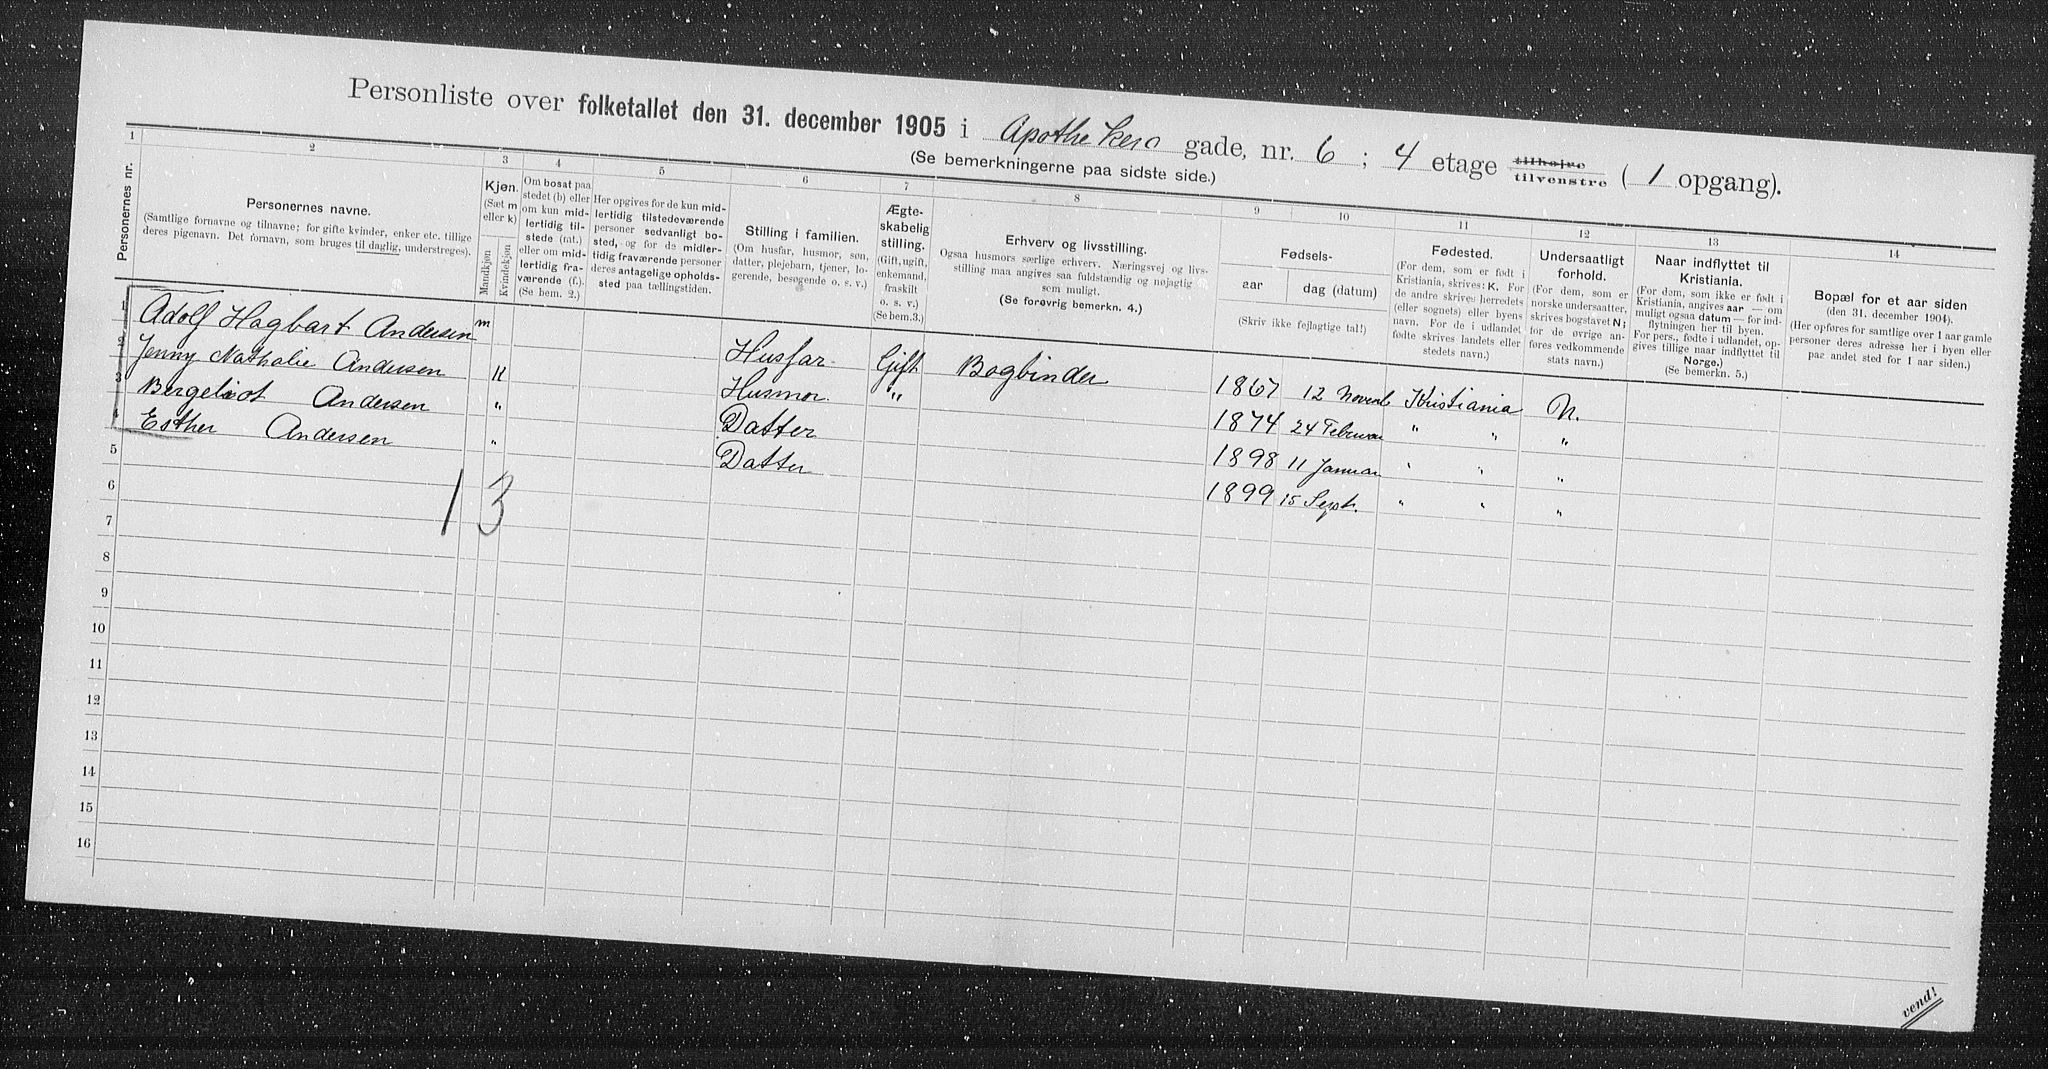 Personliste over folketallet den 31. december 1905 i Apothekers gade, nr. 6 ; 4 etage tilhøire tilvenstre ( 1 opgang).
(Se bemerkningerne paa sidste side.)
1 2 3 4 5 6 7 8 9 10 11 12 13 14
Personernes nr.
Personernes navne.
(Samtlige fornavne og tilnavne; for gifte kvinder, enker etc. tillige
deres pigenavn. Det fornavn, som bruges til daglig, understreges).
Kjøn.
(Sæt m
eller k)
Mandkjøn
Kvindekjøn
Om bosat paa
stedet (b) eller
om kun mid-
lertidig til-
stede (mt.)
eller om mid-
lertidig fra-
værende (f.).
(Se bem. 2.)
Her opgives for de kun mid-
lertidig tilstedeværende
personer sedvanligt bo-
sted, og for de midler-
tidig fraværende personer
deres antagelige opholds-
sted paa tællingstiden.
Stilling i familien.
(Om husfar, husmor, søn,
datter, plejebarn, tjener, lo-
gerende, besøgende o. s. v.)
Ægte-
skabelig
stilling.
(Gift, ugift,
enkemand,
fraskilt
o. s. v.)
(Se bem.3.)
Erhverv og livsstilling.
Ogsaa husmors særlige erhverv. Næringsvej og livs-
stilling maa angives saa fuldstændig og nøjagtig
som muligt.
(Se forøvrig bemerkn. 4.)
Fødsels-
aar
dag (datum)
(Skriv ikke fejlagtige tal!)
Fødested.
(For dem, som er født i
Kristiania, skrives: K. For
de andre skrives herredets
(eller sognets) eller byens
navn. For de i udlandet
fødte skrives landets eller
stedets navn.)
Undersaatligt
forhold.
(For dem, som er
norske undersaatter,
skrives bogstavet N;
for de øvrige an-
føres vedkommende
stats navn.)
Naar indflyttet til
Kristiania.
(For dem, som ikke er født i
Kristiania, angives aar — om
muligt ogsaa datum — for ind-
flytningen her til byen.
For pers., fødte i udlandet, op-
gives tillige naar indflyttet til
Norge.)
(Se bemerkn. 5.)
Bopæl for et aar siden
(den 31. december 1904).
(Her opføres for samtlige over 1 aar gamle
personer deres adresse her i byen eller
paa andet sted for 1 aar siden.)
1 Adolf Hagbart Andersen m Husfar Gift Bogbinder 1867 12 Novemb Kristiania N.
2 Jenny Nathalie Andersen K Husmor " 1874 24 Februar " " "
3 Bergeliot Andersen " Datter 1898 11 Januar " " "
4 Esther Andersen " Datter 1899 15 Sept. " " "
5
6 1 3
7
8
9
10
11
12
13
14
15
16
vend!